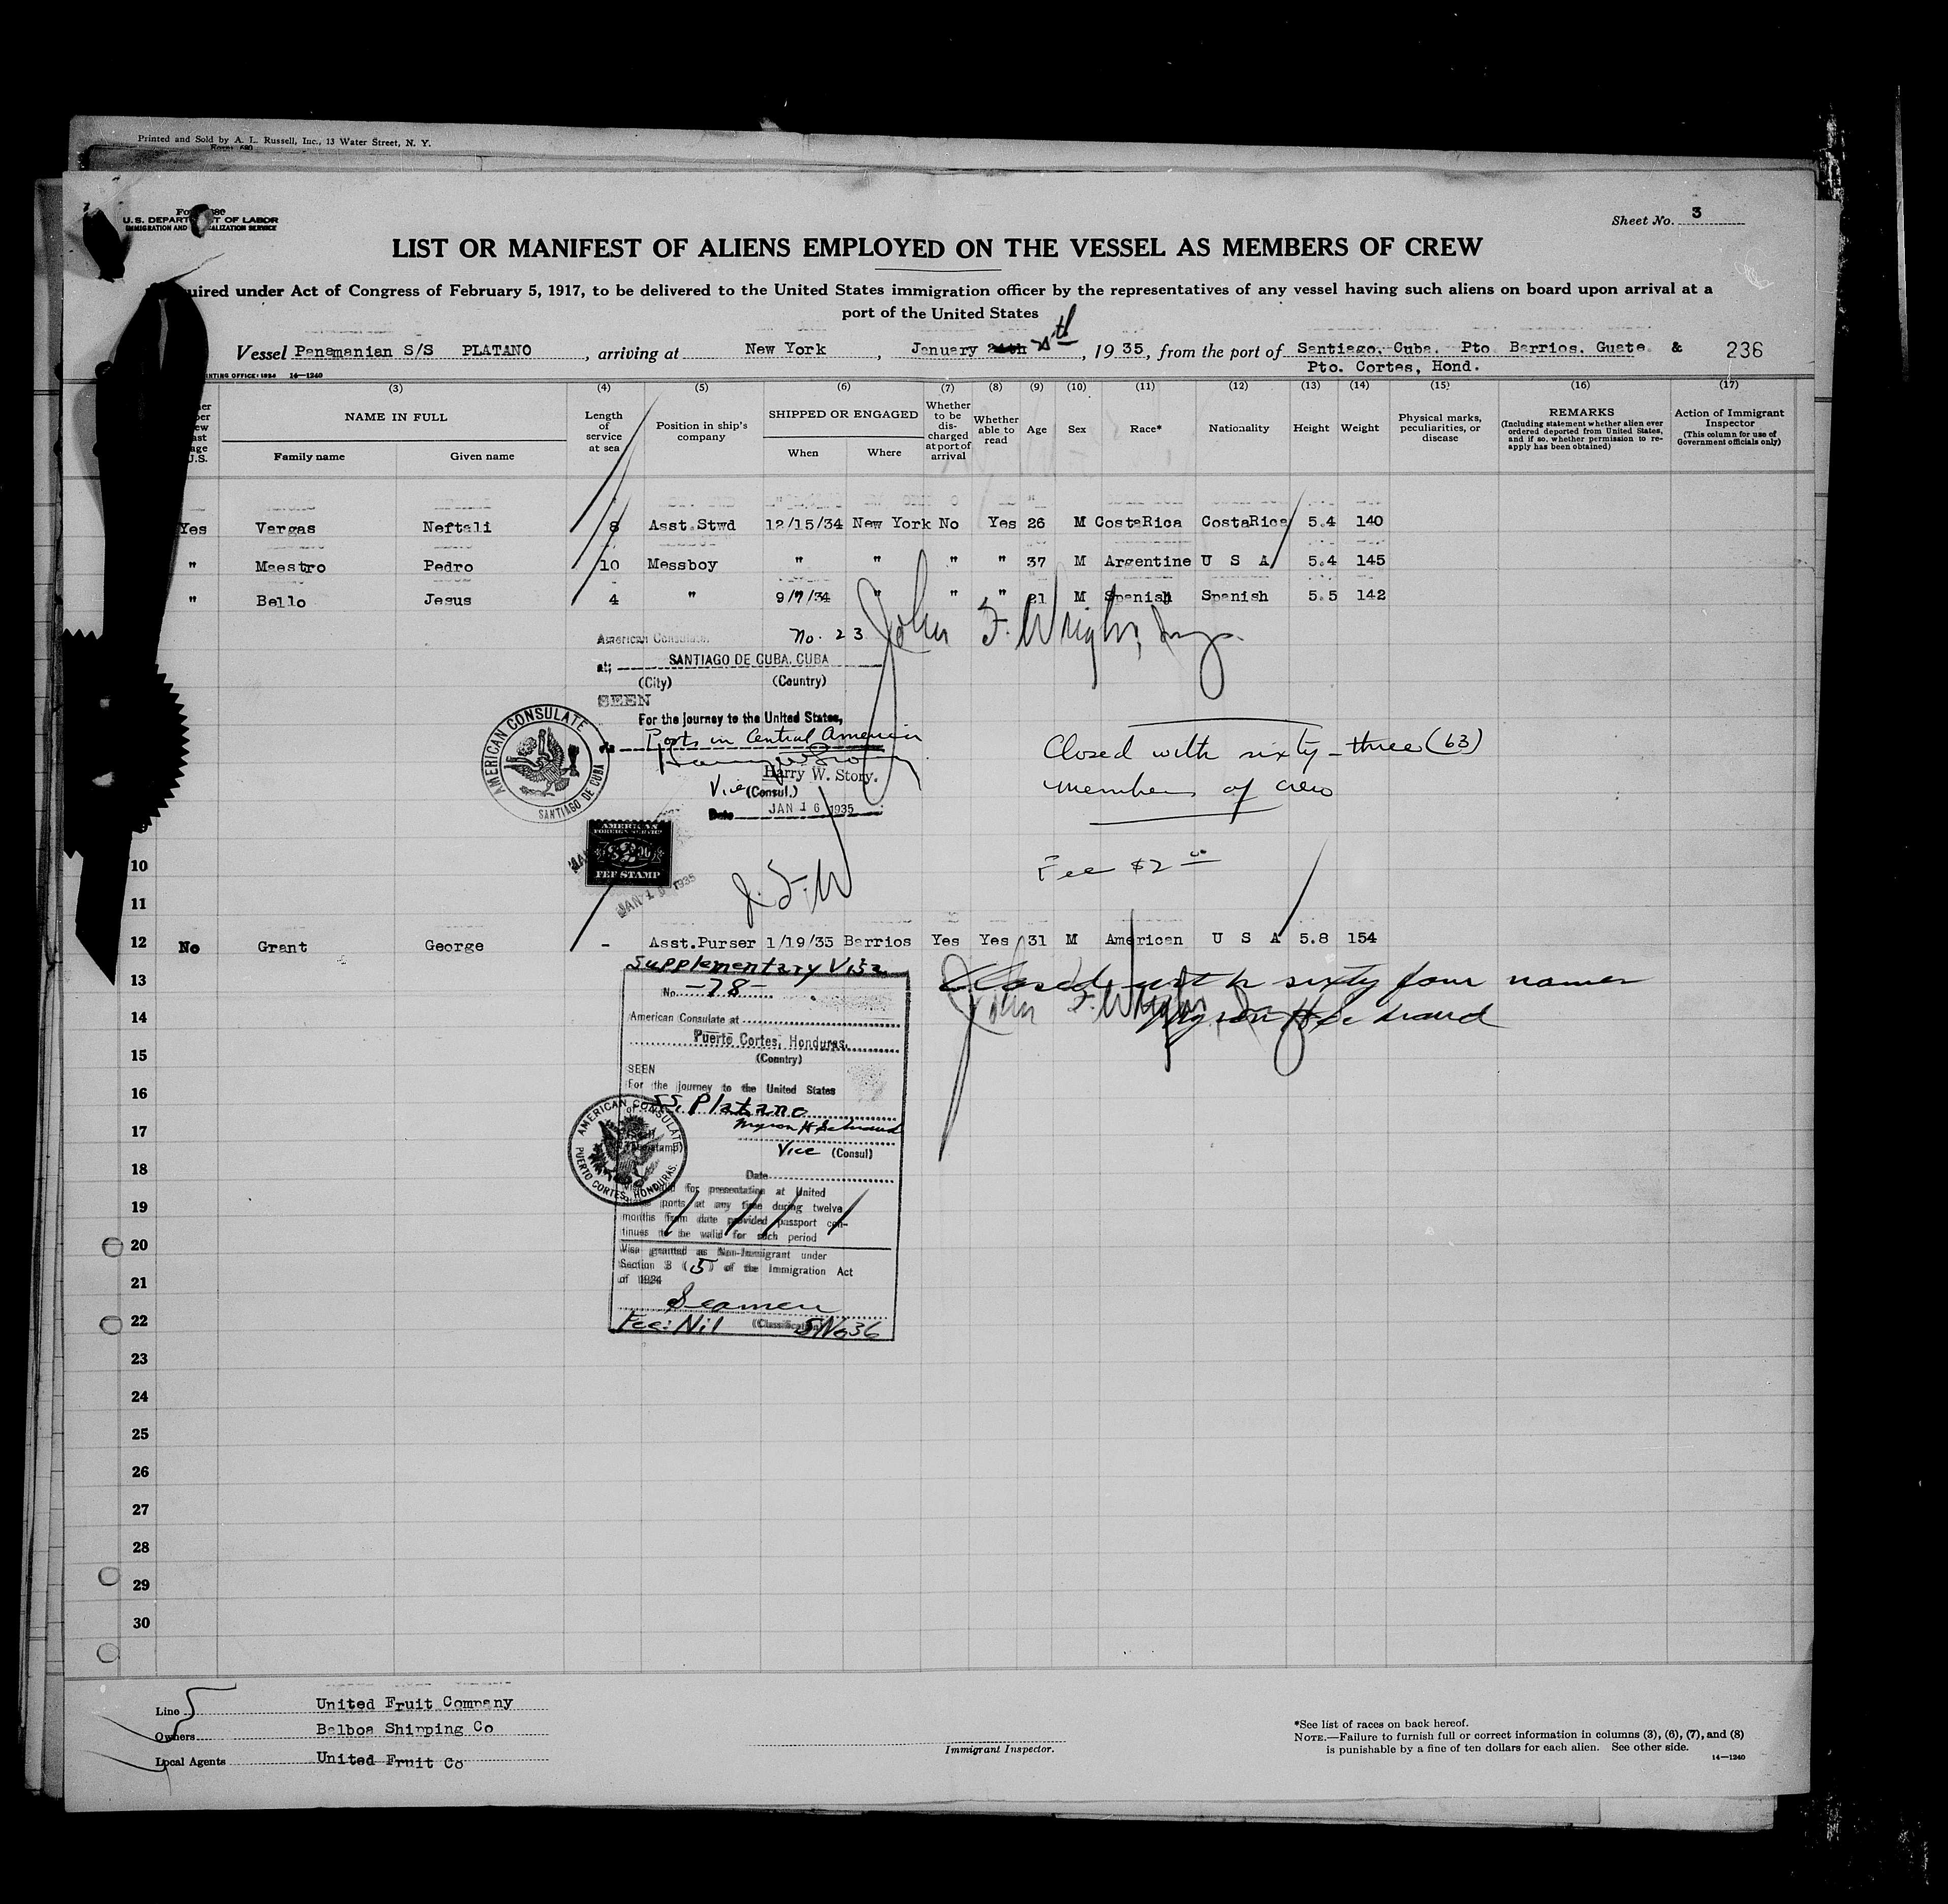 Printed and Sold by A. L. Russell, Inc., 13 Water Street, N. Y.
Sheet No. 3
U. S. DEPART T OF LABOR
IMMIGRATION AND ALIZATION SERVICE
LIST OR MANIFEST OF ALIENS EMPLOYED ON THE VESSEL AS MEMBERS OF CREW
uired under Act of Congress of February 5, 1917, to be delivered to the United States immigration officer by the representatives of any vessel having such aliens on board upon arrival at a
port of the United States
Vessel Panamanian S/S PLATANO , arriving at New York , January th , 1935, from the port of Santiago, Cuba. Pto Barrios. Guate. & 236
Pto. Cortes, Hond.
NTING OFFICE: 1934 14—1240
(3) (4) (5) (6) (7) (8) (9) (10) (11) (12) (13) (14) (15) (16) (17)
NAME IN FULL
Family name Given name
Length of service at sea
Position in ship's company
SHIPPED OR ENGAGED
When Where
Whether to be dis-charged at port of arrival
Whether able to read
Age
Sex
Race*
Nationality
Height
Weight
Physical marks, peculiarities, or disease
REMARKS
(Including statement whether alien ever ordered deported from United States, and if so, whether permission to re-apply has been obtained)
Action of Immigrant Inspector
(This column for use of Government officials only)
Yes Vargas Neftali 8 Asst.Stwd 12/15/34 New York No Yes 26 M CostaRica CostaRica 5.4 140
" Maestro Pedro 10 Messboy " " " " 37 M Argentine U S A 5.4 145
" Bello Jesus 4 " 9/7/34 " " " 21 M Spanish Spanish 5.5 142
American Consulate No. 23
John F. Wright
at; SANTIAGO DE CUBA. CUBA
(City) (Country)
SEEN
For the journey to the United States,
Ports in Central America
Harry W. Story.
Vice (Consul.)
Date JAN 16 1935
AMERICAN CONSULATE
SANTIAGO DE CUBA
Closed with sixty-three (63)
members of crew
AMERICAN
FOREIGN SERVICE
FEE STAMP
J.F.W
Fee $2 00
10
11
12 No Grant George - Asst.Purser 1/19/35 Barrios Yes Yes 31 M American U S A 5.8 154
13
14
15
16
17
18
19
20
21
22
23
24
25
26
27
28
29
30
Supplementary Visa
No. -78-
American Consulate at
Puerto Cortes, Honduras.
(Country)
SEEN
For the journey to the United States
SS. Platano
Vice (Consul)
Date
for presentation at United
ports at any time during twelve
months from date provided passport con-
tinues to be valid for such period
Visa granted as Non-Immigrant under
Section 3 (5) of the Immigration Act
of 1924
Seamen
(Classification)
Fee: Nil
AMERICAN CONSULATE
PUERTO CORTES, HONDURAS.
Closed with sixty four names
John F. Wright
Line United Fruit Company
Owners Balboa Shipping Co
Local Agents United Fruit Co
Immigrant Inspector.
*See list of races on back hereof.
NOTE.—Failure to furnish full or correct information in columns (3), (6), (7), and (8)
is punishable by a fine of ten dollars for each alien. See other side.
14—1240